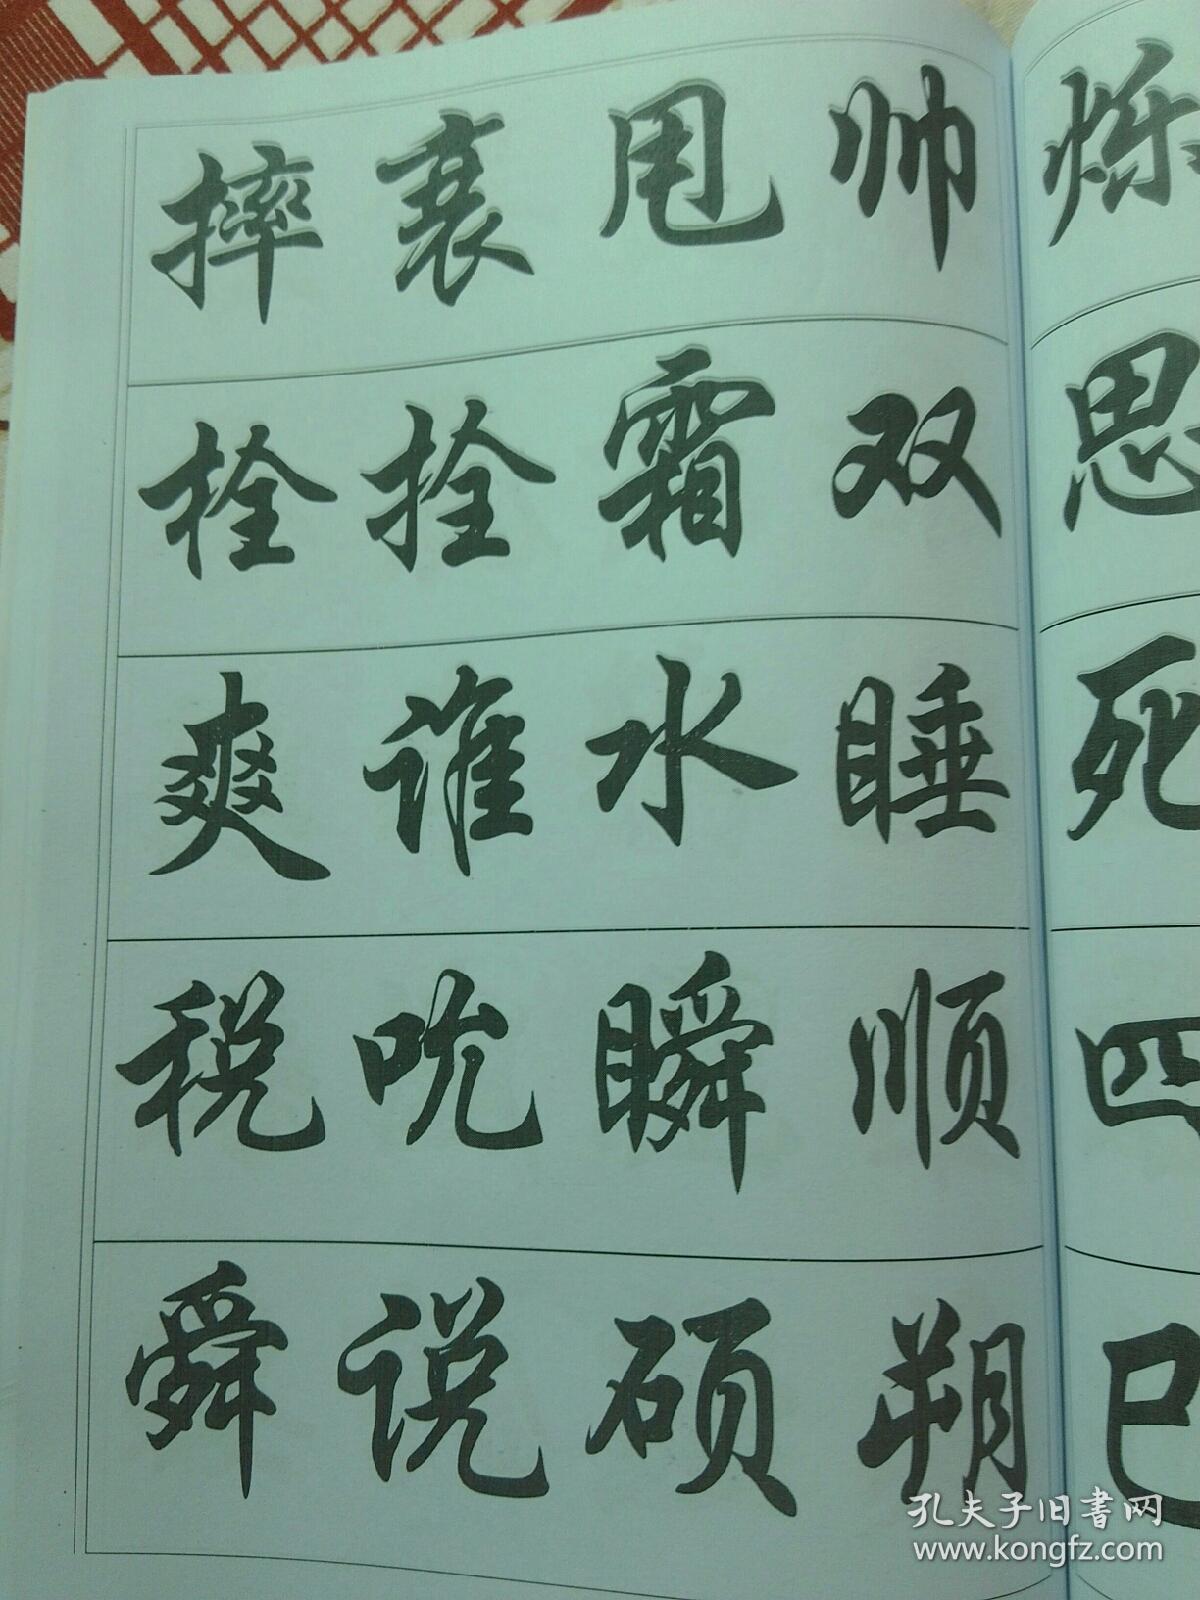 摔衰甩帅
栓拴霜双
爽谁水睡
税吮瞬顺
舜说硕朔
烁
思
死
四
巳
孔夫子旧书网
www.kongfz.com